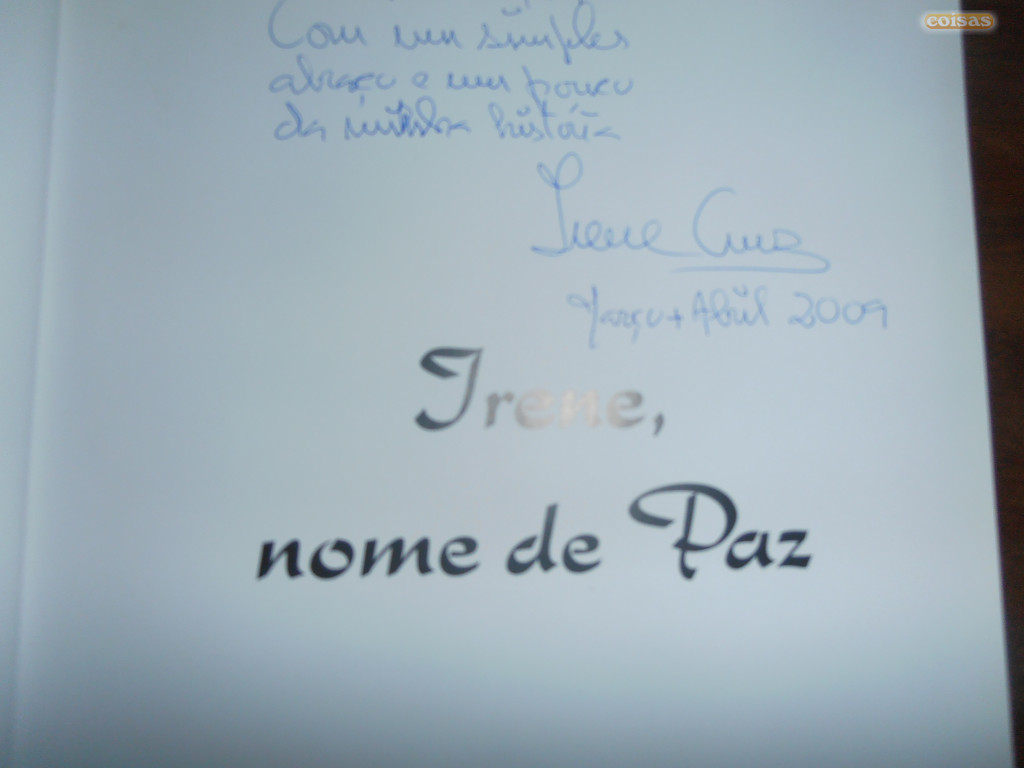 coisas
Com um simples
abraço e um pouco
da minha história
Irene Cruz
Março + Abril 2009
Irene,
nome de Paz